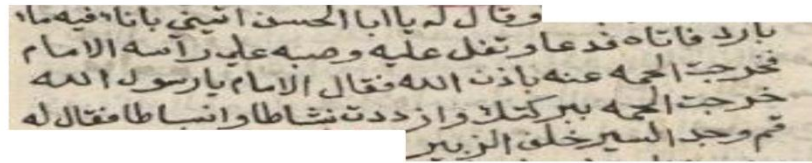 وقال له يا ابا الحسن اتيني باناء فيه ماء
بارد فاتاه فدعا وتفل عليه وصبه علي رآسه الامام
فخرجت الحمه عنه باذن الله فقال الامام يارسول الله
خرجت الحمه ببركتك وازددت نشاطا وانبساطا فقال له
قم وجد السير خلف الزبير